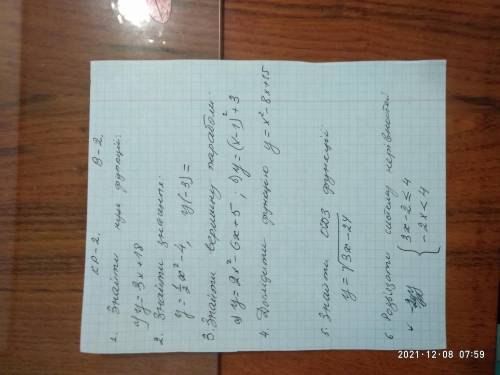 КР-2.   В-2.
1. Знайти нулі функції:
а) y = 3x + 18
2. Знайти значення:
y = ½x² - 4, y(-3) =
3. Знайти вершину параболи:
а) y = 2x² 6x - 5, б) y = (x-1)² + 3
4. Дослідити функцію y = x² - 8x + 15
5. Знайти ООЗ функції
y = √3x - 24
6 Розв'язати систему нерівностей
{ 3x - 2 ≤ 4
- 2x < 4
2021/12/08 07:59